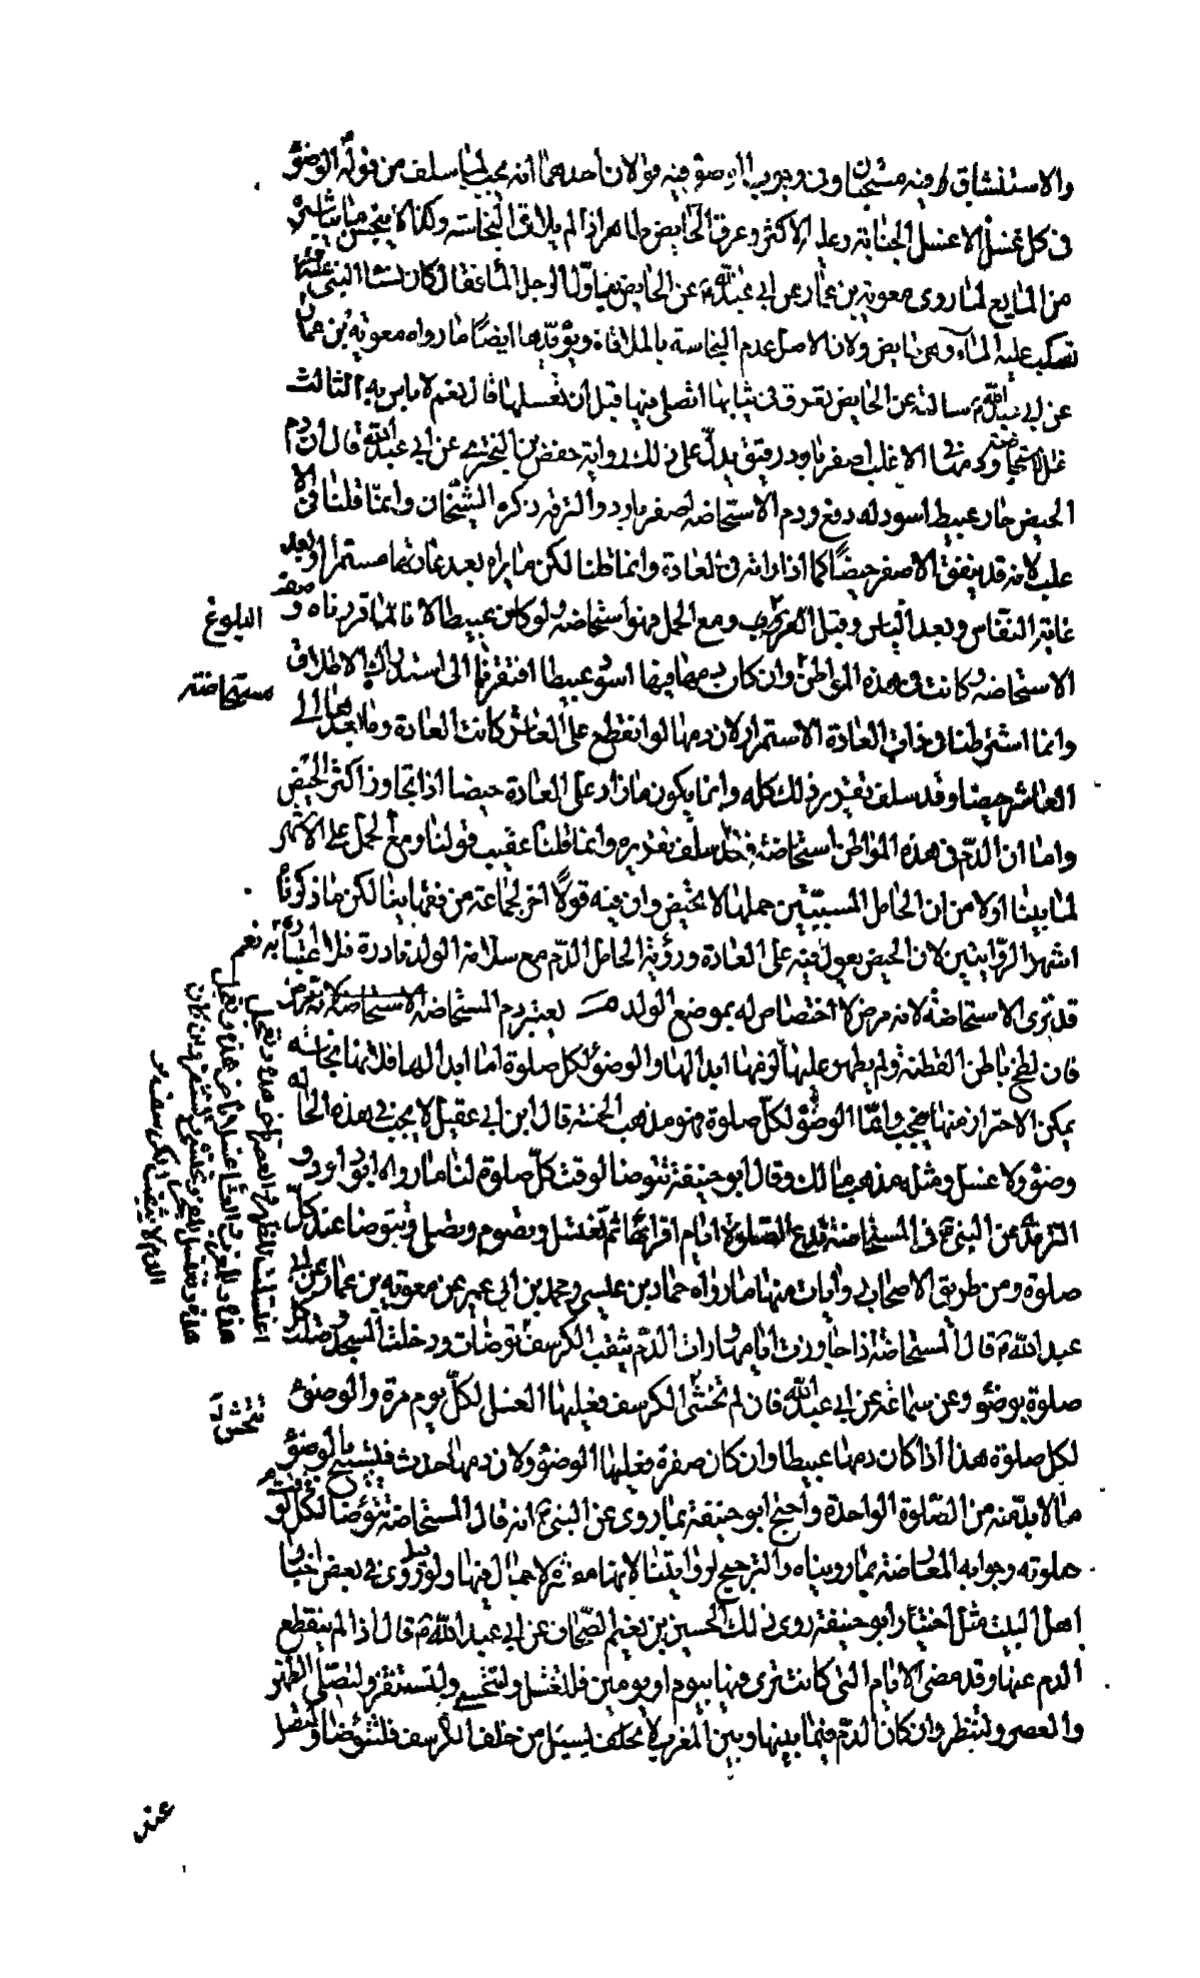 والاستنشاق فيه مستحبان وفي وجوب الوضوء فيه قولان أحدهما أنه يجب لما سلف من قوله الوضوء
في كل غسل إلا غسل الجنابة وعليه الأكثر وعرق الحايض طاهر إذا لم يلاق النجاسة وكذا لا ينجس ما تباشره
من المايع لما روى معوية بن عمار عن أبي عبد الله ع عن الحايض تناول الرجل الماء فقال كان نساء النبي
تسكب عليه الماء وهي حايض ولان الاصل عدم النجاسة بالملاقاة ويؤيدها ايضا ما رواه معوية بن عمار
عن ابي عبد الله ع سالته عن الحايض تعرق في ثيابها اتصلي فيها قبل ان تغسلها قال نعم لا باس به الثالث
غسل الاستحاضة ودمها في الاغلب اصفر بارد رقيق يدل على ذلك رواية حفص بن البختري عن ابي عبد الله قال ان دم
الحيض حار عبيط اسود له دفع ودم الاستحاضة اصفر بارد والرقة ذكره الشيخان وانما قلنا في الا
غلب لانه قد يتفق الاصفر حيضا كما اذا راته في العادة وانما قلنا لكن ما تراه بعد عادتها مستمرا او بعد
غاية النفاس وبعد الياس وقبل البلوغ ومع الحمل فهو استحاضة ولو كان عبيطا لانا لما قررناه وصف
الاستحاضة وكانت في هذه المواطن وان كان دمها فيها اسود عبيطا افتقرنا الى استدراك الاطلاق
وانما اشترطنا في ذات العادة الاستمرار لان دمها لو انقطع على العاشر كانت العادة وما بعدها الى
العاشر حيضا وقد سلف تقرير ذلك كله وانما يكون ما زاد على العادة حيضا اذا تجاوز اكثر الحيض
واما ان الدم في هذه المواطن استحاضة فقد سلف تقريره وانما قلنا عقيب قولنا ومع الحمل على الاشهر
لما بينا اولا من ان الحامل المستبين حملها لا تحيض وان فيه قولا اخر لجماعة من فقهاينا لكن ما ذكرناه
اشهر الروايتين لان الحيض يعول فيه على العادة ورؤية الحامل الدم مع سلامة الولد نادرة فلا اعتبار به نعم
قد ترى الاستحاضة لانه مرض لا اختصاص له بموضع الولد يعتبر دم المستحاضة
فان لطخ باطن القطنة ولم يظهر عليها لزمها ابدالها والوضوء لكل صلوة اما ابدالها فلانها نجاسة
يمكن الاحتراز منها فيجب واما الوضوء لكل صلوة فهو مذهب الخمسة قال ابن ابي عقيل لا يجب في هذه الحالة
وضوء ولا غسل ومثله مذهب مالك وقال ابو حنيفة تتوضا لوقت كل صلوة لنا ما رواه ابو داود و
الترمذي عن النبي ع في المستحاضة تدع الصلوة ايام اقرائها ثم تغتسل وتصوم وتصلي وتتوضا عند كل
صلوة ومن طريق الاصحاب روايات منها ما رواه حماد بن عيسى ومحمد بن ابي عمير عن معوية بن عمار عن ابي
عبد الله ع قال المستحاضة اذا جاوزت ايامها ورات الدم يثقب الكرسف توضات ودخلت المسجد وصلت كل
صلوة بوضوء وعن سماعة عن ابي عبد الله فان لم تحتشى الكرسف فعليها الغسل لكل يوم مرة والوضوء
لكل صلوة هذا اذا كان دمها عبيطا وان كان صفرة فعليها الوضوء ولان دمها حدث فيستبيح بالوضوء
ما لا بد منه من الصلوة الواحدة واحتج ابو حنيفة بما روى عن النبي ع انه قال المستحاضة تتوضا لكل وقت
صلوته وجوابه المعارضة بما رويناه والترجيح لروايتنا لانها لا احتمال فيها ولو روى في بعض اخبار
اهل البيت مثل اختيار ابو حنيفة روى ذلك الحسين بن نعيم الصحاف عن ابي عبد الله ع قال اذا لم ينقطع
الدم عنها وقد مضى الايام التي كانت ترى فيها بيوم او يومين فلتغتسل ولتحتشي ولتستثفر ولتصلي الظهر
والعصر ولتنظر وان كان الدم فيما بينها وبين المغرب لا يسيل من خلف الكرسف فلتتوضا ولتصل
عند
البلوغ
مستحاضة
اغتسلت للظهر والعصر تؤخر هذه وتعجل
هذه وللمغرب والعشا غسلا تؤخر هذه وتعجل
هذه وتغتسل للفجر وتحتشي وتستثفر وان كان
الدم لا يثقب الكرسف
تحتش